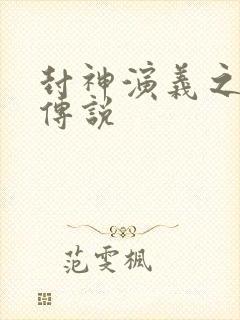 封神演義之
傳說
范雯楓